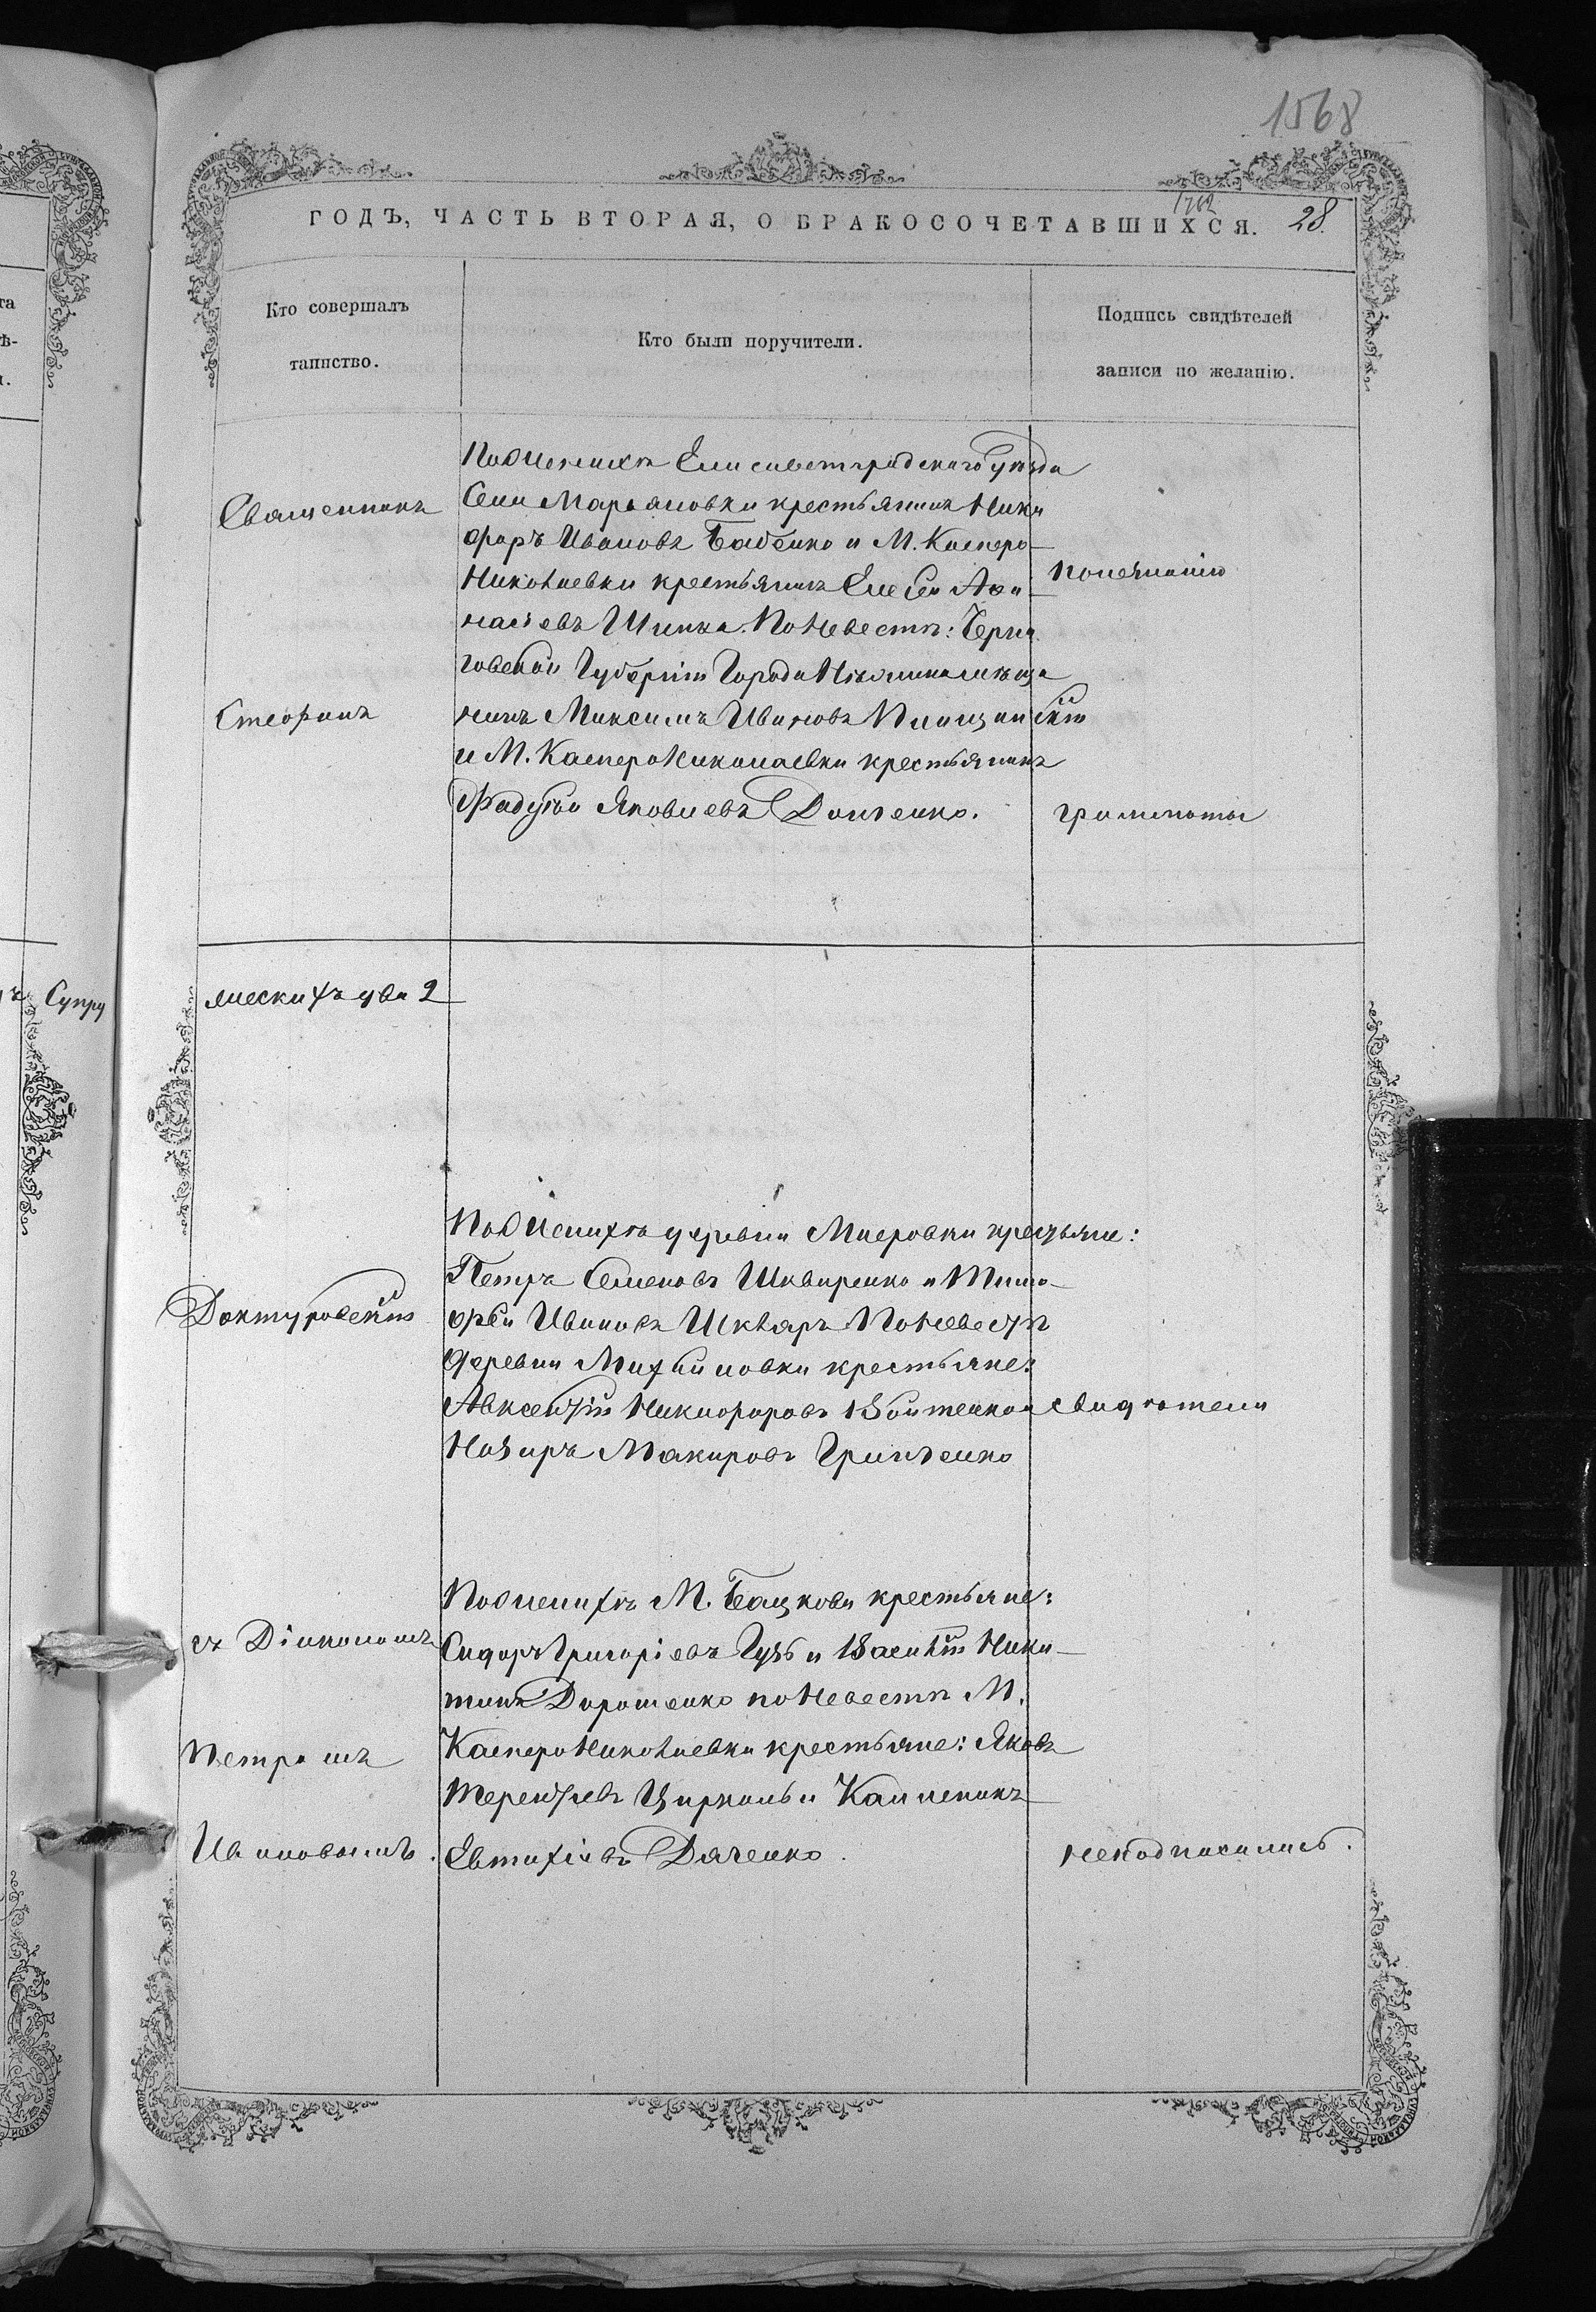 1568
ГОДЪ, ЧАСТЬ ВТОРАЯ, О БРАКОСОЧЕТАВШИХСЯ.
28.
Кто совершалъ
таинство.
Кто были поручители.
Подпись свидѣтелей
записи по желанію.
Священникъ
Стефанъ
По женихѣ Елисаветградского уѣзда
Села Марьяновки крестьянинъ Ники
форъ Ивановъ Бабенко и М. Касперо-
Николаевки крестьянинъ Елесей Афа
насіевъ Шинка. По невестѣ: Черни
говской Губерніи Города Нѣжина мѣща
нинъ Максимъ Ивановъ
и М. Касперо Николаевки крестьянинъ
Фадей Яковлевъ Донченко.
По незнанію
грамоты
мескихъ два 2
Супру
Доктуровскій
По женихѣ деревни Маеровки крестьяне:
Петръ Семеновъ Шквиренко и Тимо-
фей Ивановъ Шкваръ По невестѣ
деревни Михайловки крестьяне:
Авксентій Никифоровъ Войтенко и
Назаръ Макаровъ Гринченко
свидѣтели
съ Діакономъ
Петромъ
Ивановымъ.
По женихѣ М. Башкова крестьяне:
Сидоръ Григоріевъ Гузь и Василій Ники-
тинъ Дорошенко по невестѣ М.
Касперо Николаевки крестьяне: Яковъ
Терентіевъ Циркаль и Каленикъ
Евтихіевъ Дяченко.
не подписались.